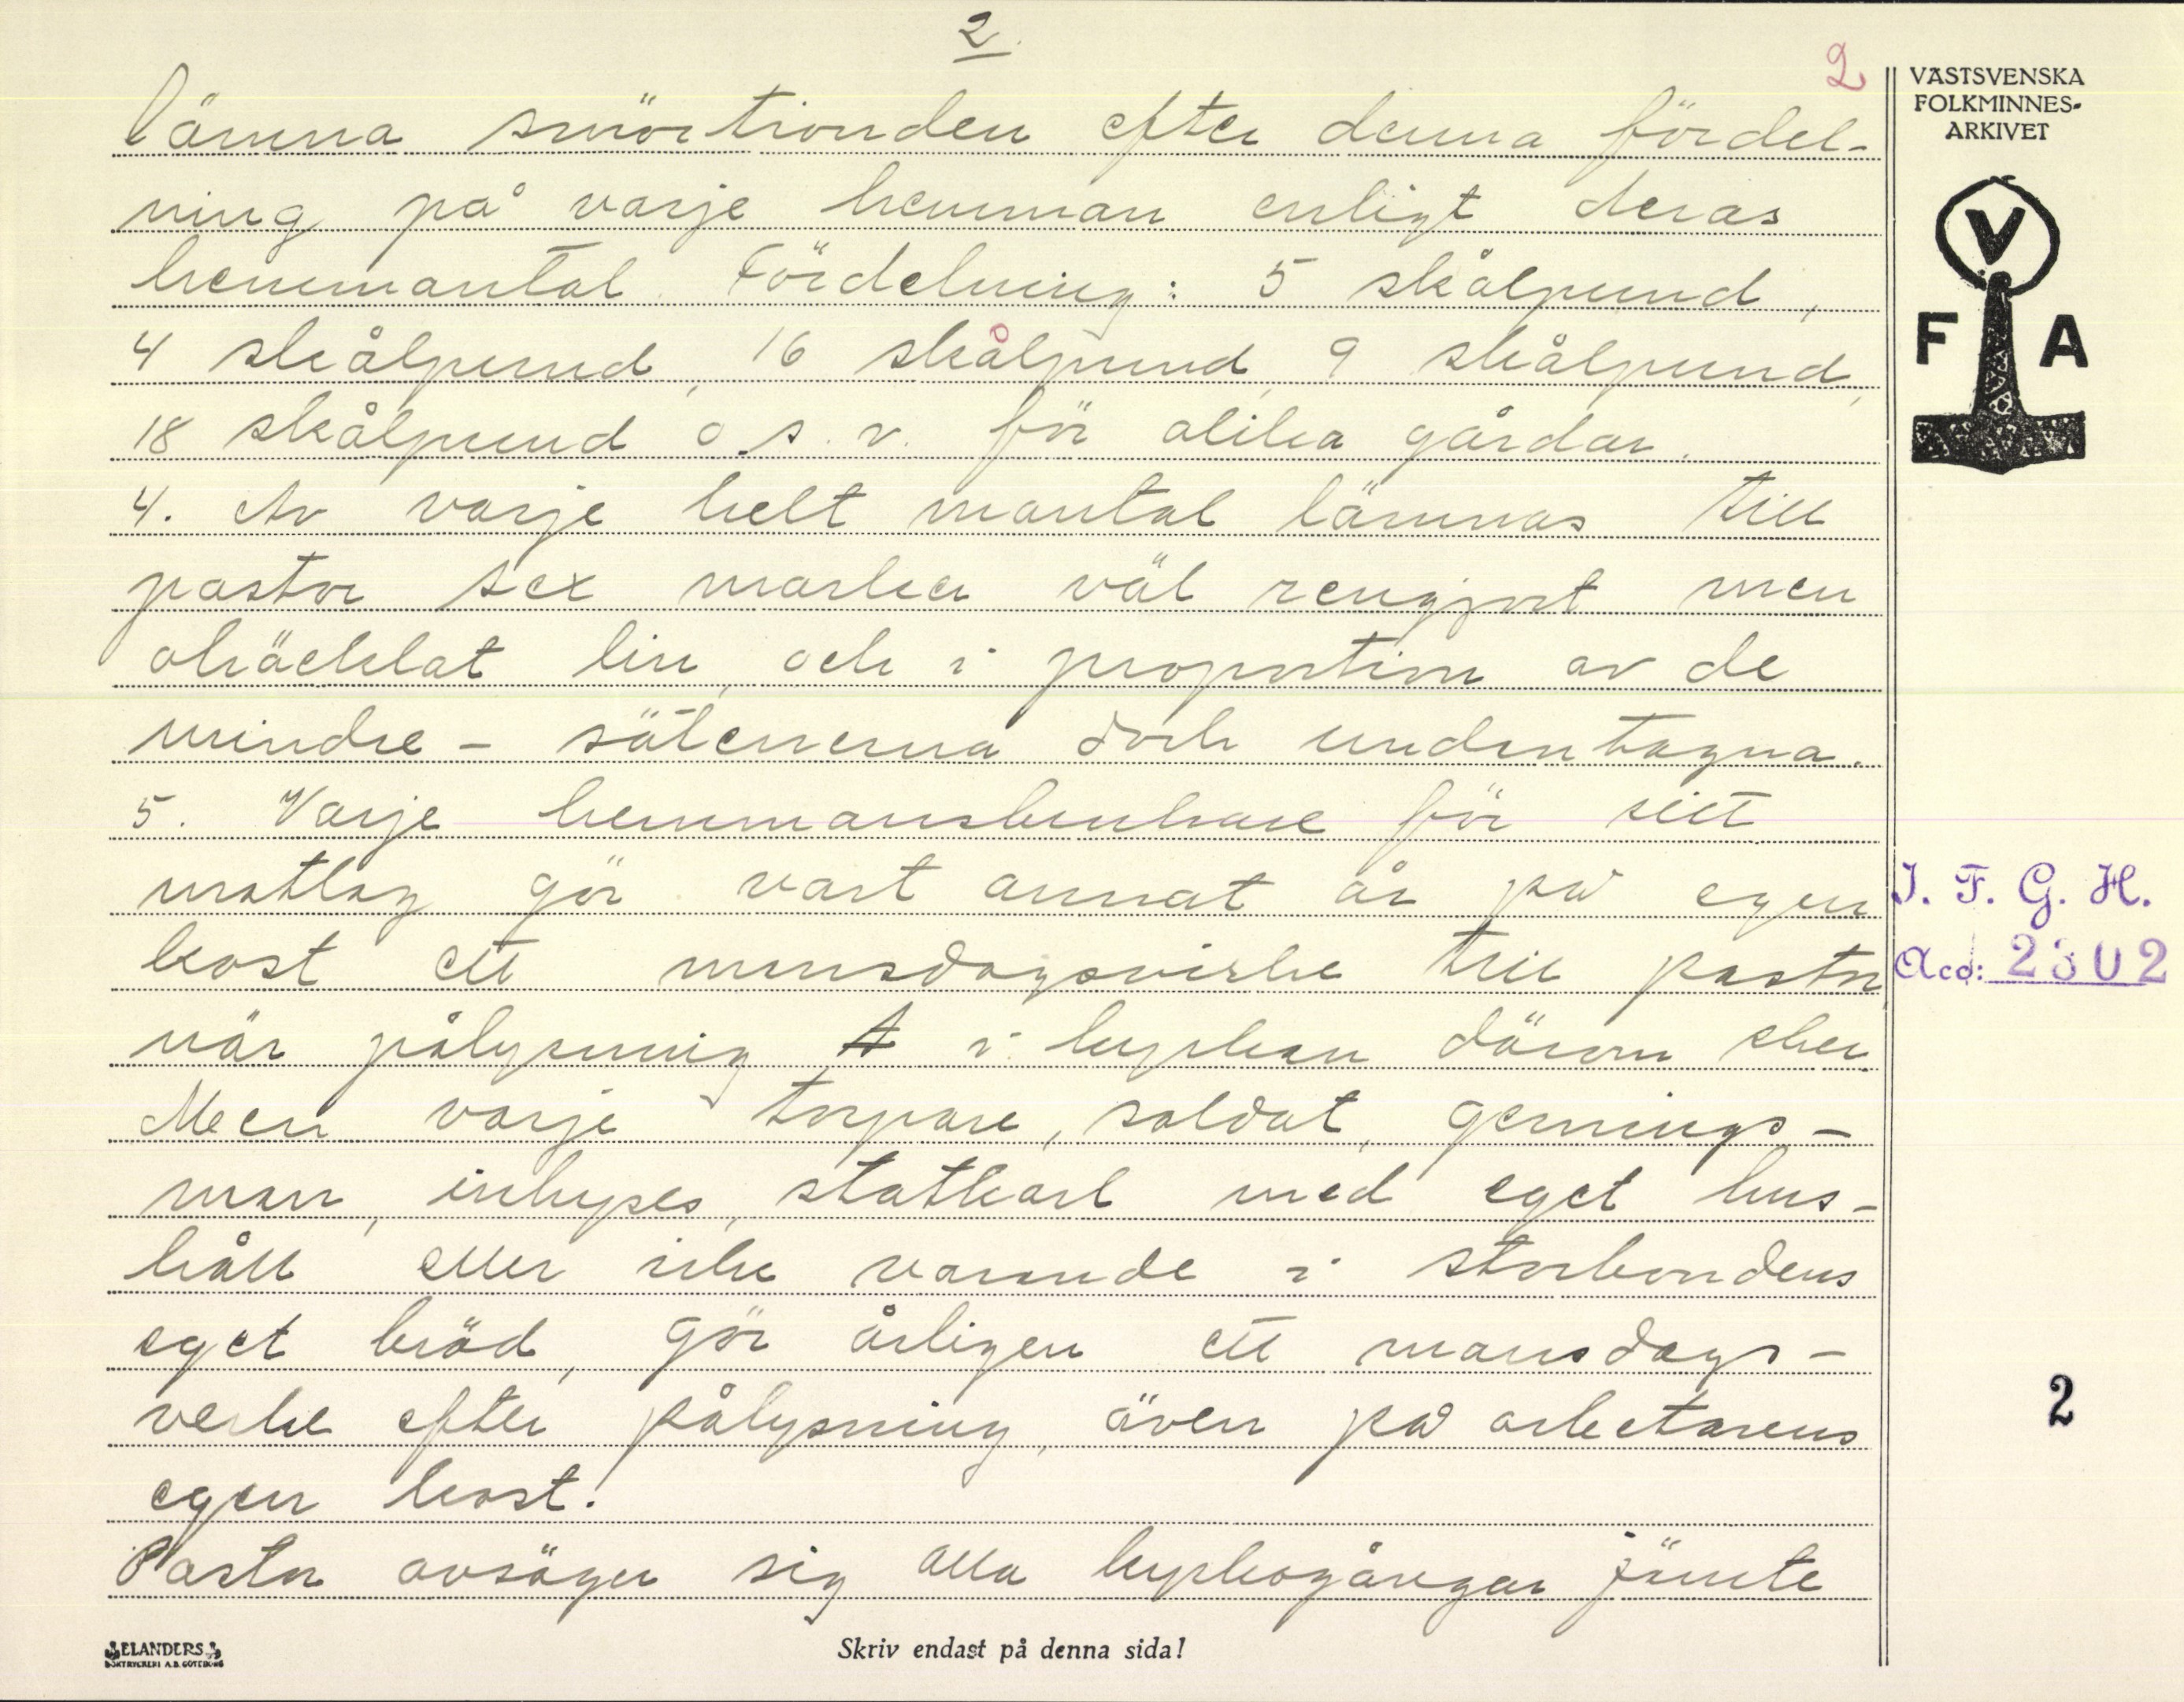 2.
2
lämna smörtionden efter denna fördel-
ning på varje hemman enligt deras
hemmantal. Fördelning: 5 skålpund,
4 skålpund, 16 skålpund, 9 skålpund,
18 skålpund o.s.v. för olika gårdar.
4. Av varje helt mantal lämnas till
pastor sex marker väl rengjort men
ohäcklat lin, och i proportion av de
mindre - säterierna dock undantagna.
5. Varje hemmansbrukare för sitt
matlag gör vart annat år på egen
kost ett mansdagsvirke till pastor,
när pålysning i kyrkan därom sker.
Men varje torpare, soldat, gernings-
man, inhyses, statkarl med eget hus-
håll eller icke varande i storbondens
eget bröd, gör årligen ett mansdags-
verke efter pålysning, även på arbetarens
egen kost.
Pastor avsäger sig alla kyrkogångar jämte
VÄSTSVENSKA
FOLKMINNES-
ARKIVET
V
F A
I. F. G. H.
Acc: 2302
2
ELANDERS
BOKTRYCKERI A.B. GÖTEBORG
Skriv endast på denna sida!